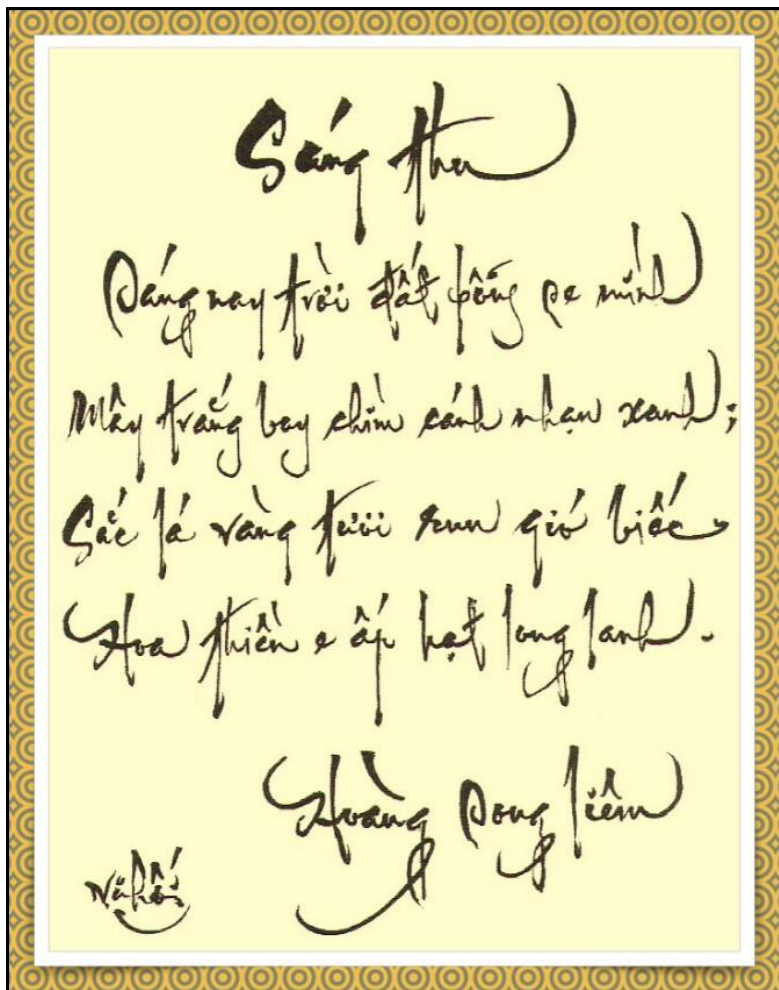 Sáng thu
Sáng nay trời đất bỗng se mình
Mây trắng bay chìm cánh nhạn xanh;
Sắc lá vàng tươi run gió biếc,
Hoa thiền e ấp hạt long lanh.
Hoàng Song Liêm
Vũ hối